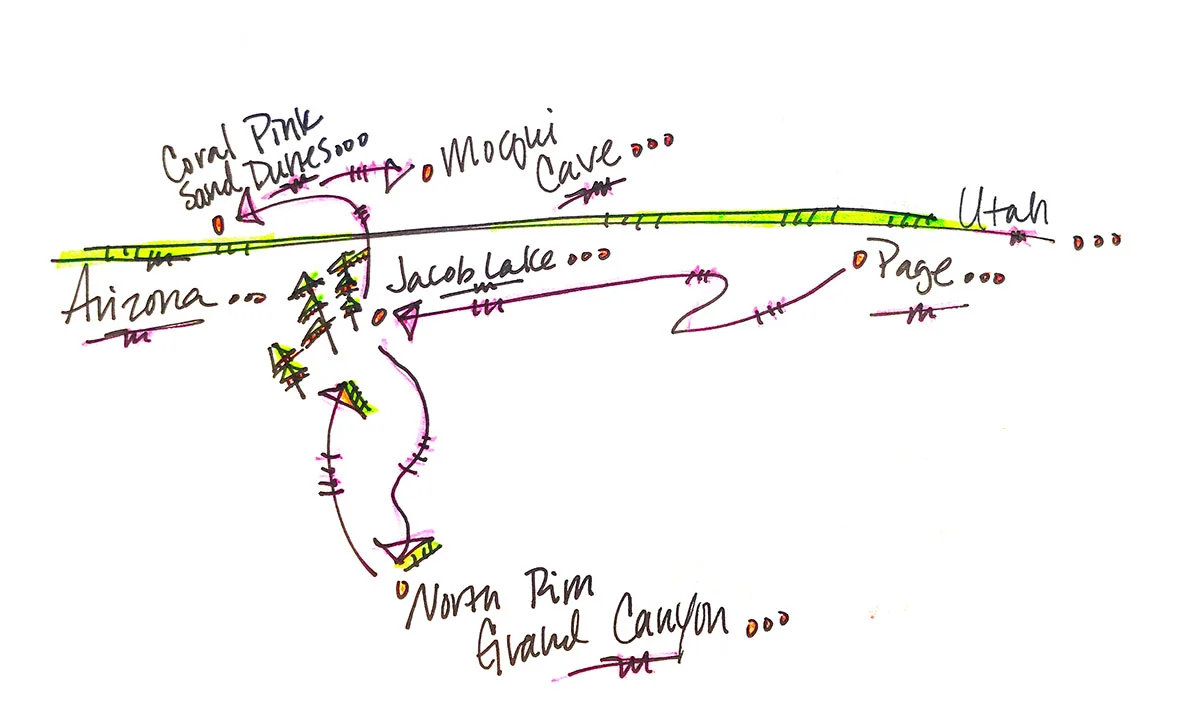 Coral Pink
Sand Dunes...
Moqui
Cave...
Utah
...
Arizona...
Jacob Lake...
Page...
North Rim
Grand Canyon...